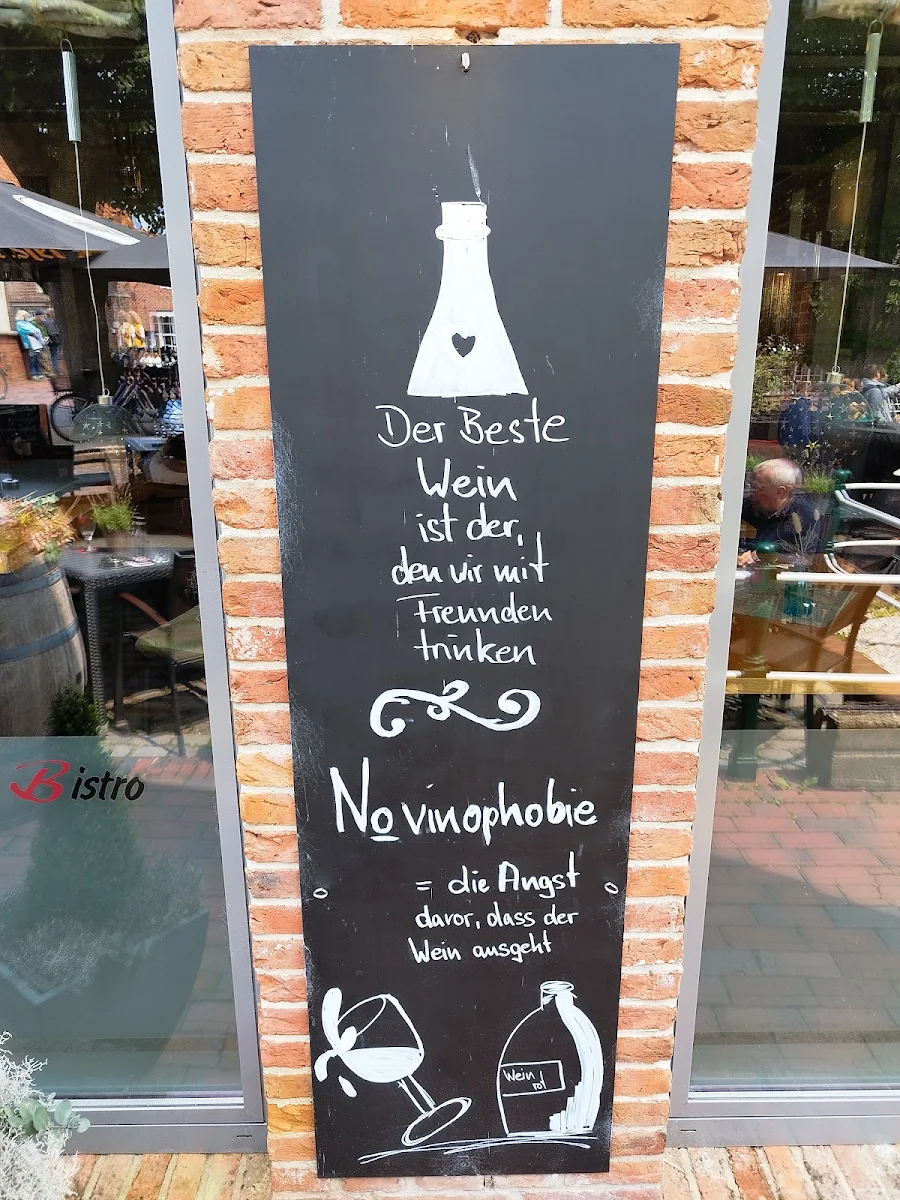 Der Beste
Wein
ist der,
den wir mit
Freunden
trinken
No vinophobie
= die Angst
davor, dass der
Wein ausgeht
Wein
rot
Bistro